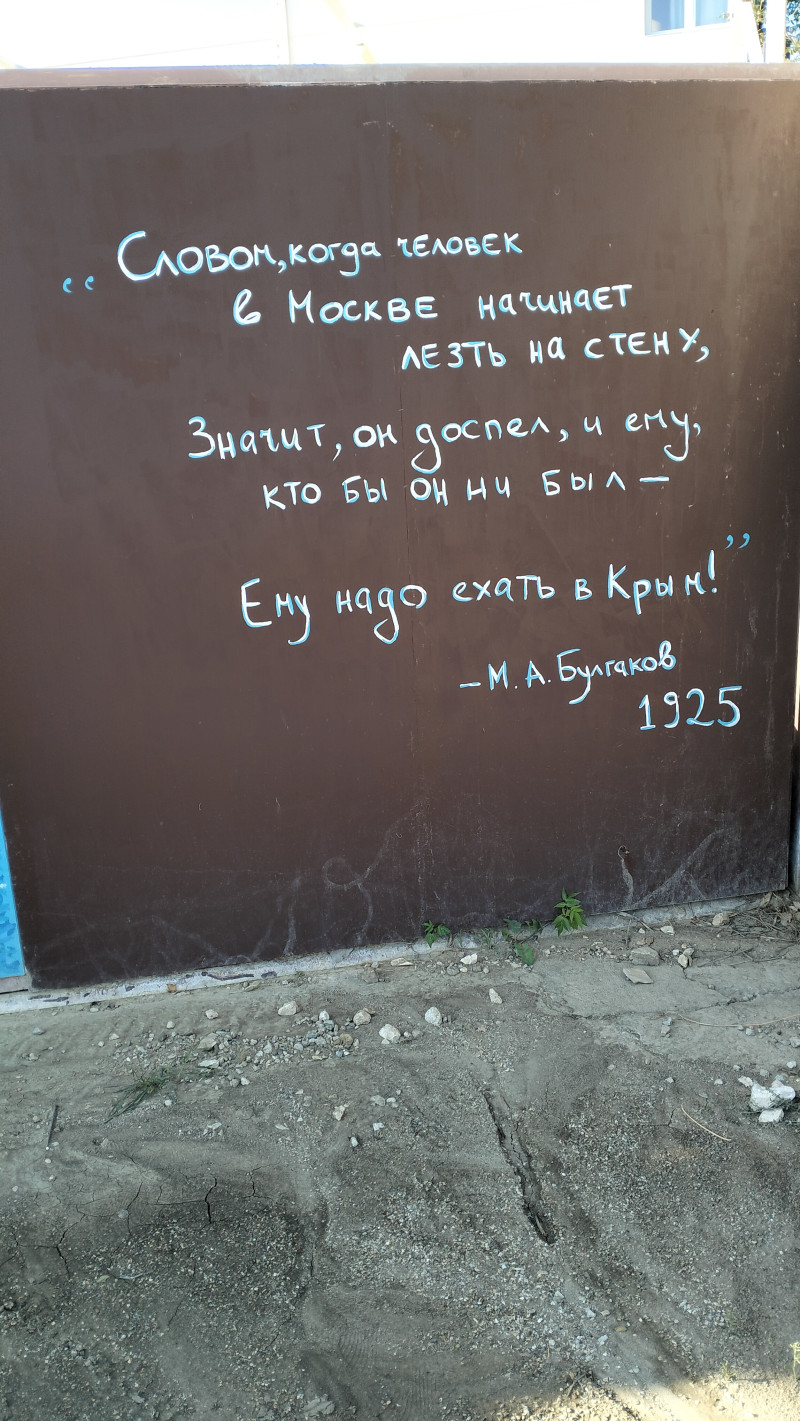 “Словом, когда человек
в Москве начинает
лезть на стену,
Значит, он доспел, и ему,
кто бы он ни был –
Ему надо ехать в Крым!”
– М. А. Булгаков
1925